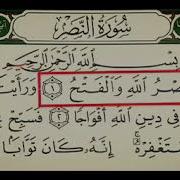 سُورَةُ النَّصْرِ
بِسْمِ اللَّهِ الرَّحْمَٰنِ الرَّحِيمِ
صْرُ اللَّهِ وَالْفَتْحُ ۝١ وَرَأَيْتَ
فِي دِينِ اللَّهِ أَفْوَاجًا ۝٢ فَسَبِّحْ
سْتَغْفِرْهُ ۚ إِنَّهُ كَانَ تَوَّابًا